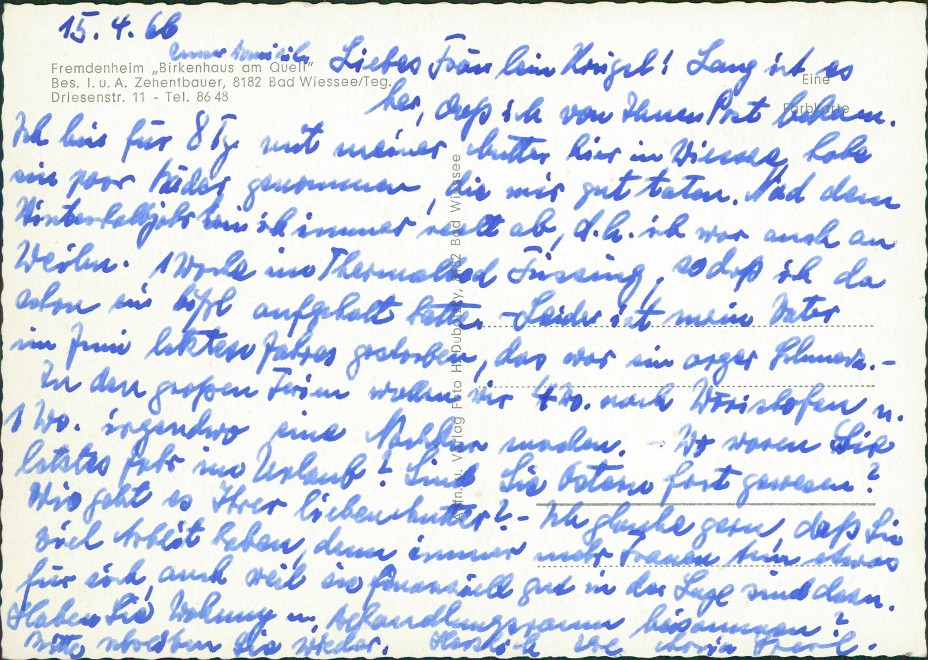 15.4.66
Unser Domizil
Fremdenheim „Birkenhaus am Quell"
Bes. I. u. A. Zehentbauer, 8182 Bad Wiessee/Teg.
Driesenstr. 11 - Tel. 86 48
Eine
Farbkarte
Liebes Fräulein! Lang ist es
her, daß ich von Ihnen Post bekam.
Ich bin für 8 Tg. mit meiner Mutter hier in Wiessee, habe
ein paar Bäder genommen, die mir gut taten. Nach dem
Winterhalbjahr bin ich immer recht ab, d.h. ich war auch an
Weihn. 1 Woche im Thermalbad Füssing, sodaß ich da
schon ein bißl aufgeholt hatte. Leider ist mein Vater
im Juni letzten Jahres gestorben, das war ein arger Schmerz.-
In den großen Ferien wollen wir 4 Wo. nach Wörishofen u.
1 Wo. irgendwo eine Nachkur machen. - Wo waren Sie
letztes Jahr im Urlaub? Sind Sie Ostern fort gewesen?
Wie geht es Ihrer lieben Mutter? - Ich glaube gern, daß Sie
viel Arbeit haben, denn immer mehr Frauen tun etwas
für sich, auch weil sie finanziell gut in der Lage sind dazu.
Haben Sie Wohnung u. Behandlungsraum beisammen?
Bitte schreiben Sie wieder. Herzlich Ihre Maria
Verlag Foto H. Dubotzky, 8182 Bad Wiessee